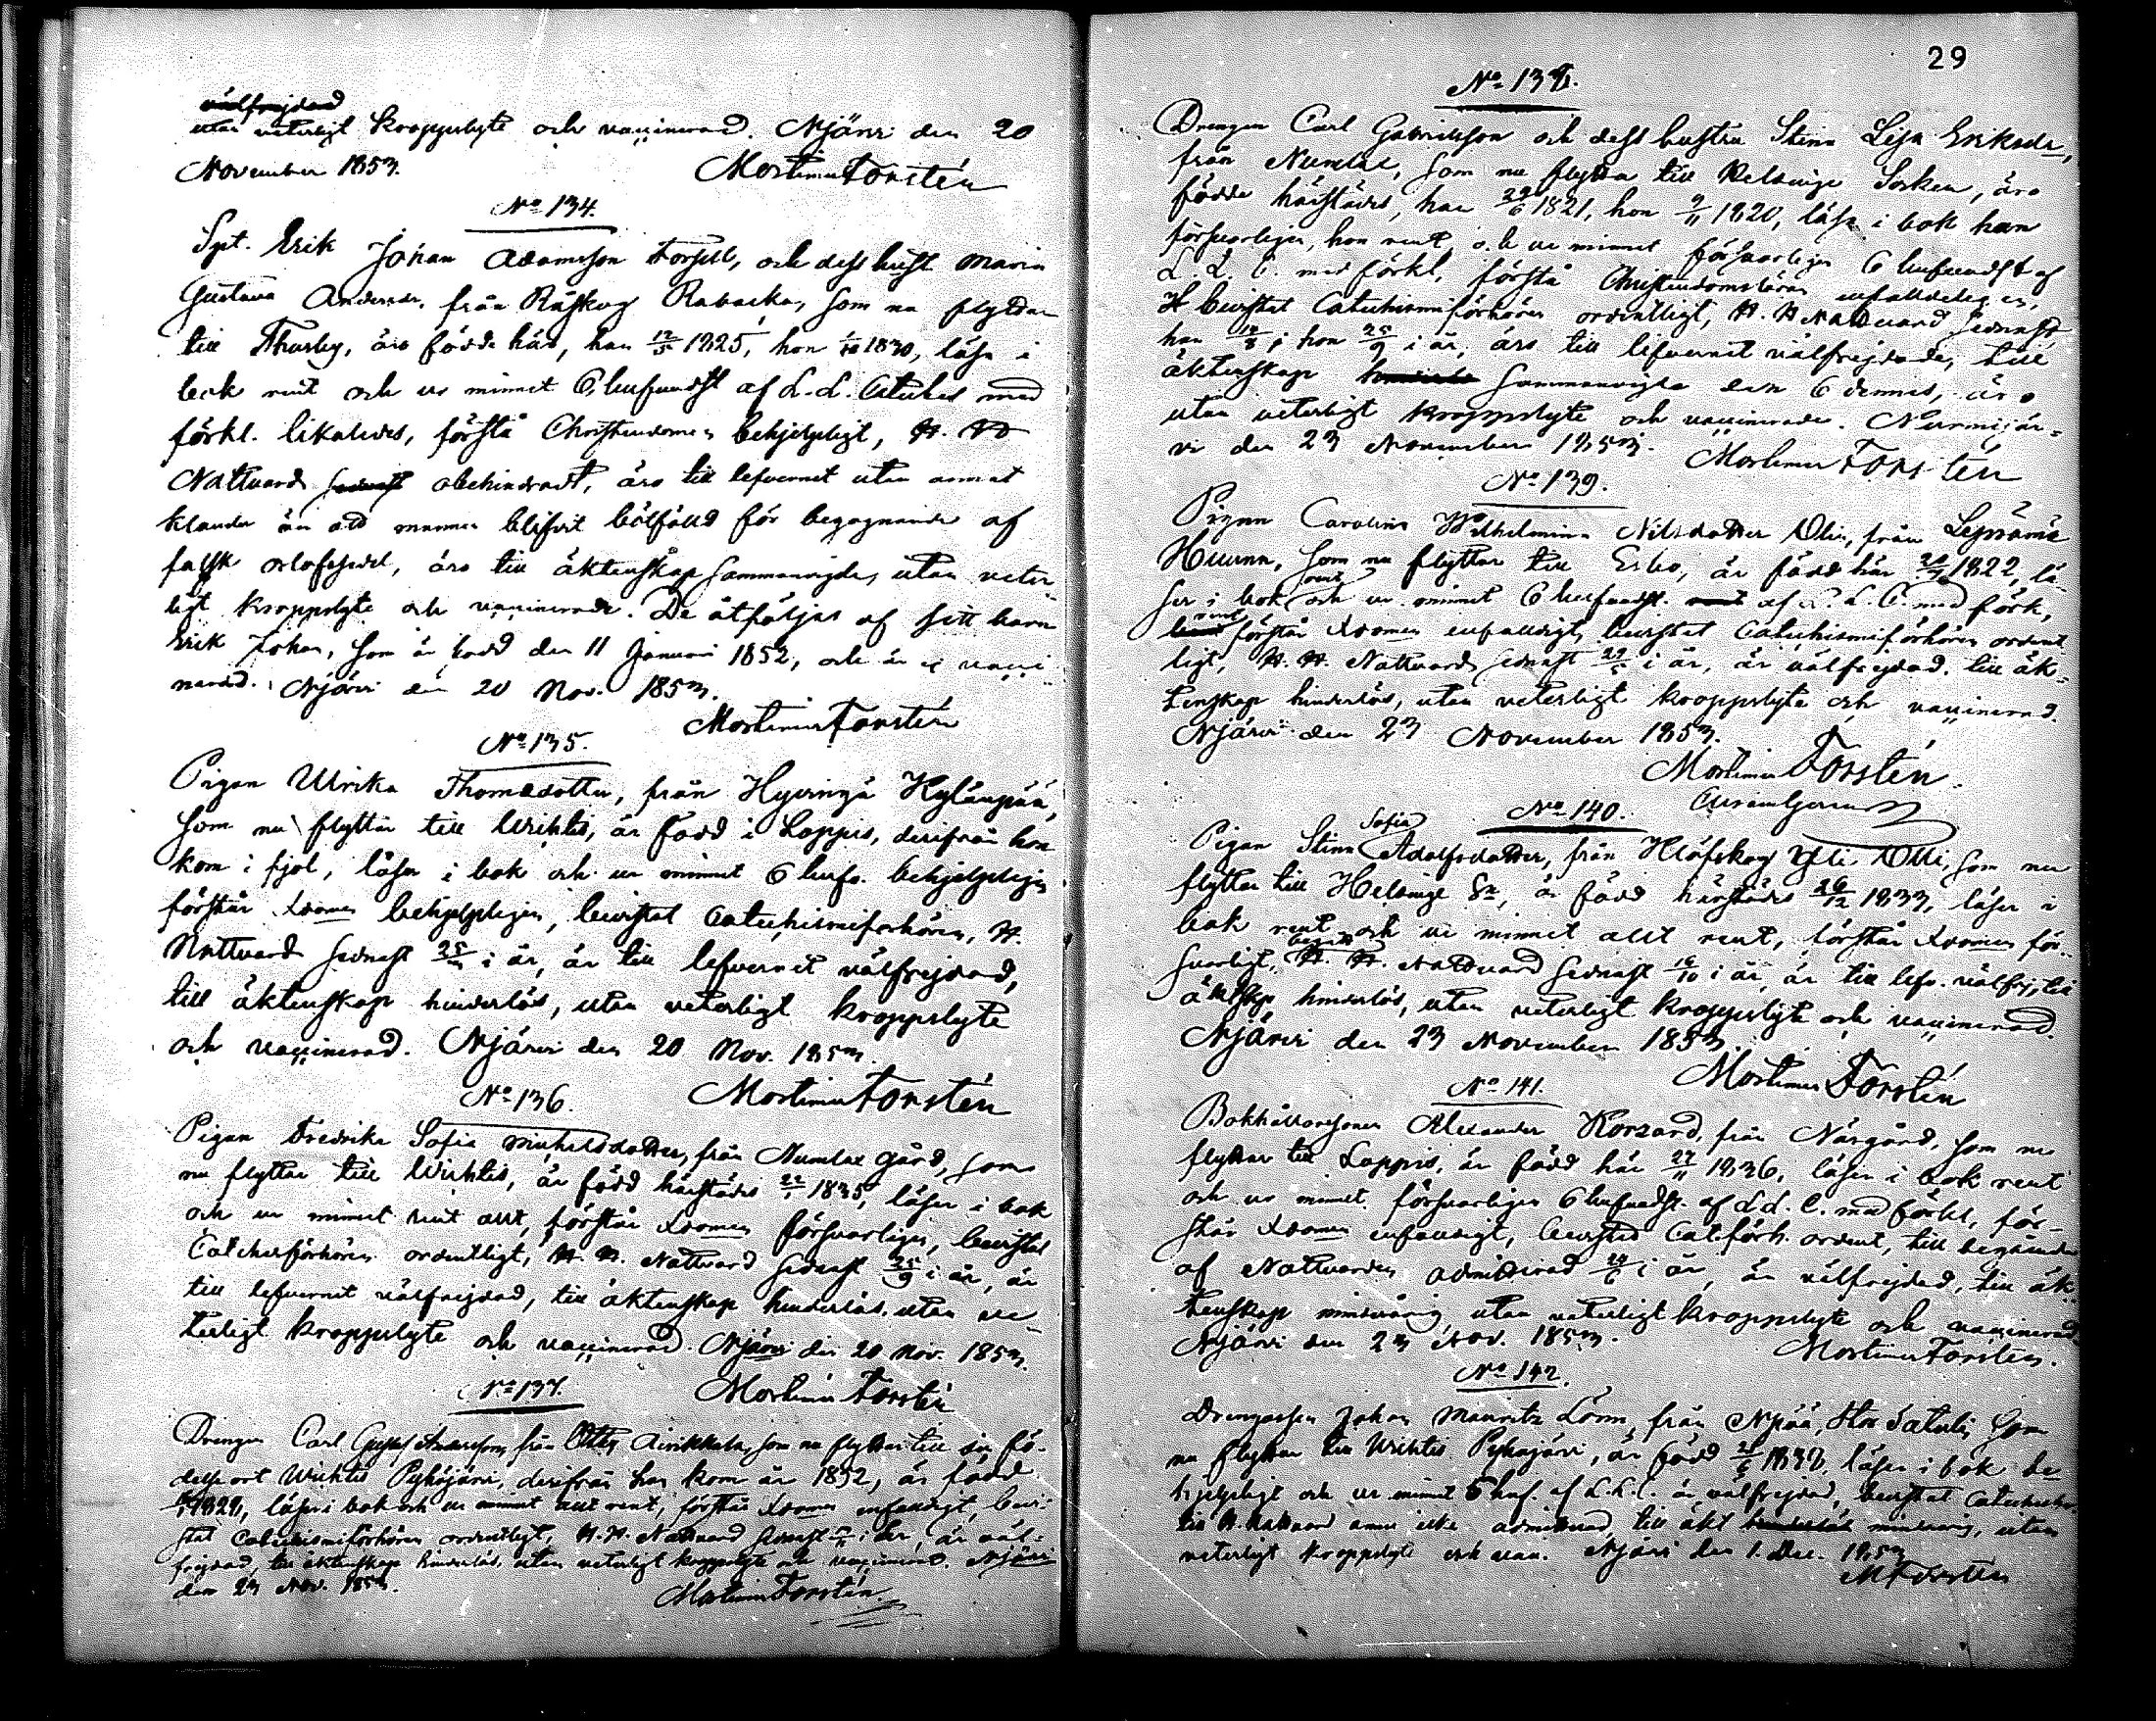 utan veterligt kroppslyte och vaccinerad. Njärvi den 20
November 1853.
Mortimer Forstén
No 134.
Spt. Erik Johan Adamsson Forsell, och dess hust Maria
Gustava Andersdr. från Råskog Rabacka, som nu flyttar
till Thusby, äro födde här, han 12/5 1825, hon 1/10 1830, läsa i
bok rent och ur minnet 6 hufvudst af L. L. Cateches med
förkl. likaledes, förstå Christendomen behjelpligt, H. H
Nattvard obehindradt, äro till lefvernet utan annat
klander än att mannen blifvit bötfälld för begagnande af
falsk orlofssedel, äro till äktenskap sammanvigde, utan veter-
ligt kroppslyte och vaccinerade. De åtföljas af sitt barn
Erik Johan, som är född den 11 Januari 1852, och är ej vacci-
nerad. Njärvi den 20 Nov. 1853.
Mortimer Forstén
No 135.
Pigan Ulrika Thomasdotter, från Hyvinge Kylänpää,
som nu flyttar till Wichtis, är född i Loppis, derifrån hon
kom i fjol, läser i bok och ur minnet 6 hufv. behjelpligen
förstår Xdomen behjelpligen, bevistat Catechismiförhören, H.
Nattvard sednast i är, är till lefvernet välfrejdad,
till äktenskap hinderlös, utan veterligt kroppslyte
och vaccinerad. Njärvi den 20 Nov. 1853.
Mortimer Forstén
No 136.
Pigan Fredrika Sofia Michelsdotter, från Numlax gård, som
nu flyttar till Wichtis, är född härstädes 22/1 1835, läser i bok
och ur minnet rent allt, förstår Xdomen försvarligen, bevistat
Catechesförhören ordentligt, H. H. Nattvard sednast 25/9 i år, är
till lefvernet välfrejdad, till äktenskap hinderlös, utan ve-
terligt kroppslyte och vaccinerad. Njärvi den 20 Nov. 1853.
Mortimer Forstén
No 137.
Drengen Carl Gustaf Andersson, från Ottby Airikkala, som nu flyttar till sin fö-
delseort Wichtis Pyhäjärvi, derifrån han kom år 1852, är född
1829, läser i bok och ur minnet allt rent, förstår Xdomen enfaldigt, bevi-
stat Catechismiförhören ordentligt, H. H. Nattvard sednast i år, är väl-
frejdad, till äktenskap hinderlös, utan veterligt kroppslyte och vaccinerad. Njärvi
den 23 Nov. 1853.
Mortimer Forstén
29
No 138.
Drengen Carl Gabrielsson och dess hustru Stina Lisa Eriksdr,
från Numlax, som nu flytta till Helsinge Socken, äro
födde härstädes, han 29/6 1821, hon 9/11 1820, läsa i bok han
försvarligen, hon rent, och ur minnet försvarligen 6 hufvudst af
L. L. C. med förkl, förstå Christendomsläran enfaldeligen,
bevistat Catechismiförhören ordentligt, H. H Nattvard sednast,
han i hon 25/9 i år, äro till lefvernet välfrejdade, till
äktenskap sammanvigde den 6 dennes, äro
utan veterligt kroppslyte och vaccinerade. Nurmijär-
vi den 23 November 1853.
Mortimer Forstén
No 139.
Pigan Carolina Wilhelmina Nilsdotter Olin, från Lepsämä
Huunna, som nu flyttar till Esbo, är född här 1822, lä-
ser i bok rent och ur minnet 6 hufvudst. af L. L. C. med förk,
rent förstår Xdomen enfaldigt, bevistat Catechismiförhören ordent
ligt, H. H. Nattvard sednast i år, är välfrejdad, till äk-
tenskap hinderlös, utan veterligt kroppslyte och vaccinerad.
Njärvi den 23 November 1853.
Mortimer Forstén.
No 140.
Pigan Stina Sofia Adolfsdotter, från Klöfskog Yli Olli, som nu
flyttar till Helsinge Sn, är född härstädes 26/12 1833, läser i
bok rent och ur minnet allt rent, förstår Xdomen för-
svarligt, H. H. Nattvard sednast 16/10 i år, är till lefv. välfrj, till
äktskp hinderlös, utan veterligt kroppslyte och vaccinerad.
Njärvi den 23 November 1853.
Mortimer Forstén
No 141.
Bokhållaresonen Alexander Rorzard, från Närgård, som nu
flyttar till Loppis, är född här 27/11 1836, läser i bok rent
och ur minnet försvarligen 6 hufvudst. af L. L. C. med förkl, för-
står Xdomen enfaldigt, bevistad Cat.förh. ordent, till begående
af Nattvarden admitterad i år, är välfrejdad, till äk-
tenskap minderårig, utan veterligt kroppslyte och vaccinerad.
Njärvi den 23 Nov. 1853.
Mortimer Forstén.
No 142.
Drengossen Johan Mauritz Lönn, från Nepää, Stor Satula, som
nu flyttar till Wichtis Pyhäjärvi, är född 1838, läser i bok be-
hjelpligt och ur minnet 5 huf. af L. L. C. är välfrejdad, bevistat Catecheförh
till H. Nattvard ännu icke admitterad, till äkt minderårig, utan
veterligt kroppslyte och vac. Njärvi den 1. Dec. 1853
M Forstén